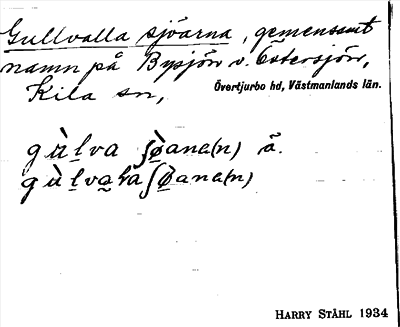 Gullvalla sjöarna, gemensamt
namn på Bysjön o. Östersjön,
Kila sn,
Övertjurbo hd, Västmanlands län.
gùlva ʃøana(n) ä.
gùlvalaʃøana(n)
HARRY STÅHL 1934